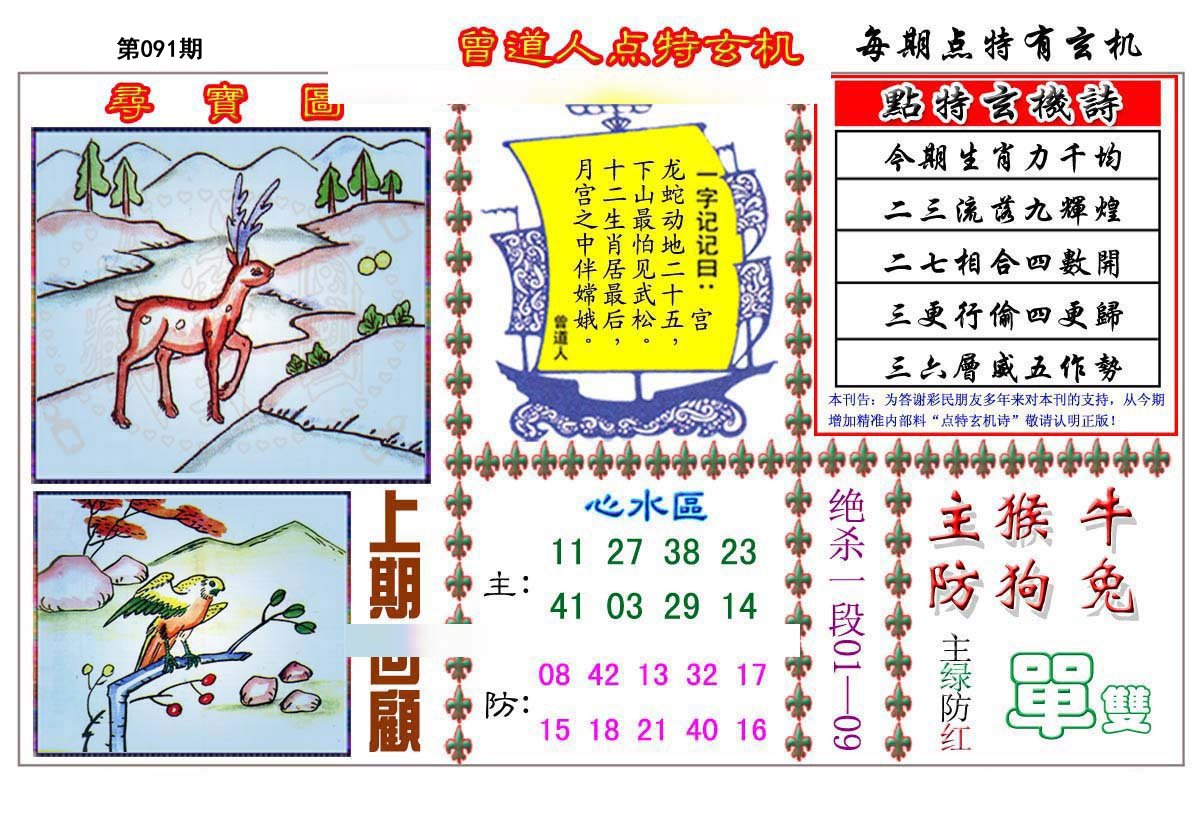 第091期
曾道人点特玄机
每期点特有玄机
尋寶圖
一字记记曰：宫
龙蛇动地二十五，
下山最怕见武松。
十二生肖居最后，
月宫之中伴嫦娥。
曾道人
點特玄機詩
今期生肖力千均
二三流落九輝煌
二七相合四數開
三更行偷四更歸
三六層盛五作勢
本刊告：为答谢彩民朋友多年来对本刊的支持，从今期
增加精准内部料“点特玄机诗”敬请认明正版！
上期回顧
心水區
主：
11 27 38 23
41 03 29 14
防：
08 42 13 32 17
15 18 21 40 16
绝杀一段01—09
主猴牛
防狗兔
主绿防红
單雙